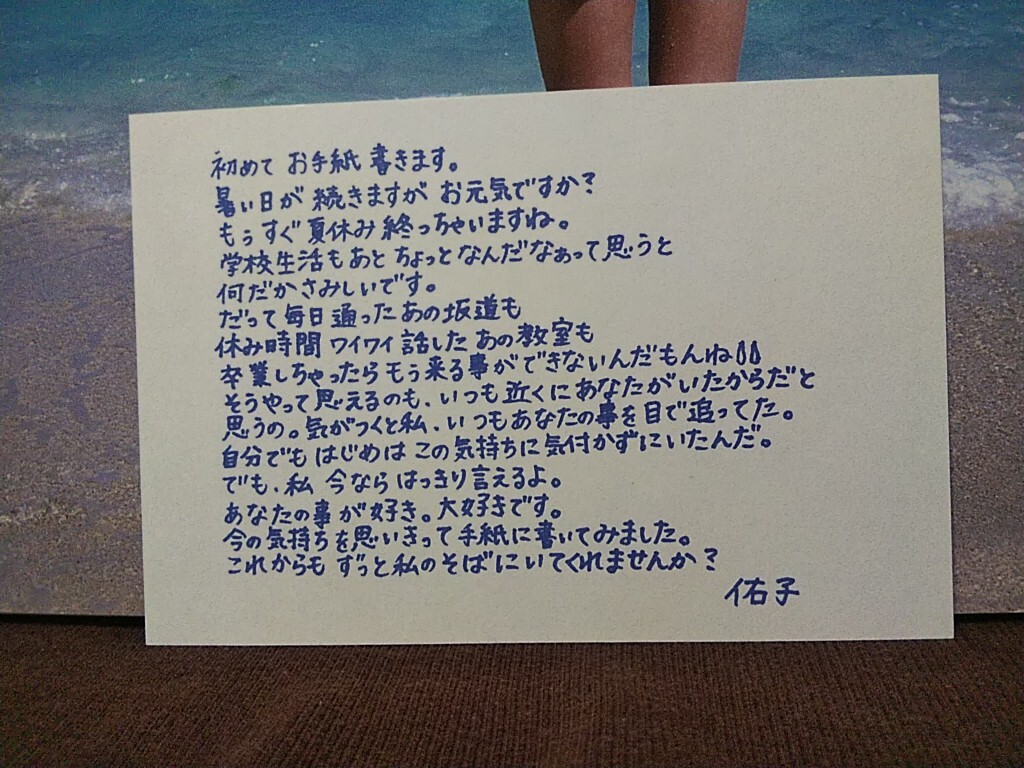 初めて お手紙 書きます。
暑い日が 続きますが お元気ですか?
もうすぐ 夏休み 終っちゃいますね。
学校生活も あと ちょっと なんだなぁって 思うと
何だか さみしいです。
だって 毎日 通った あの坂道も
休み時間 ワイワイ 話した あの教室も
卒業しちゃったら もう来る事ができないんだもんね
そうやって 思えるのも、いつも 近くに あなたが いたからだと
思うの。気がつくと 私、いつも あなたの事を 目で 追ってた。
自分でも はじめは この気持ちに 気付かずに いたんだ。
でも、私 今なら はっきり 言えるよ。
あなたの事が 好き。大好きです。
今の気持ちを 思いきって 手紙に 書いてみました。
これからも ずっと 私の そばに いてくれませんか?
佑子